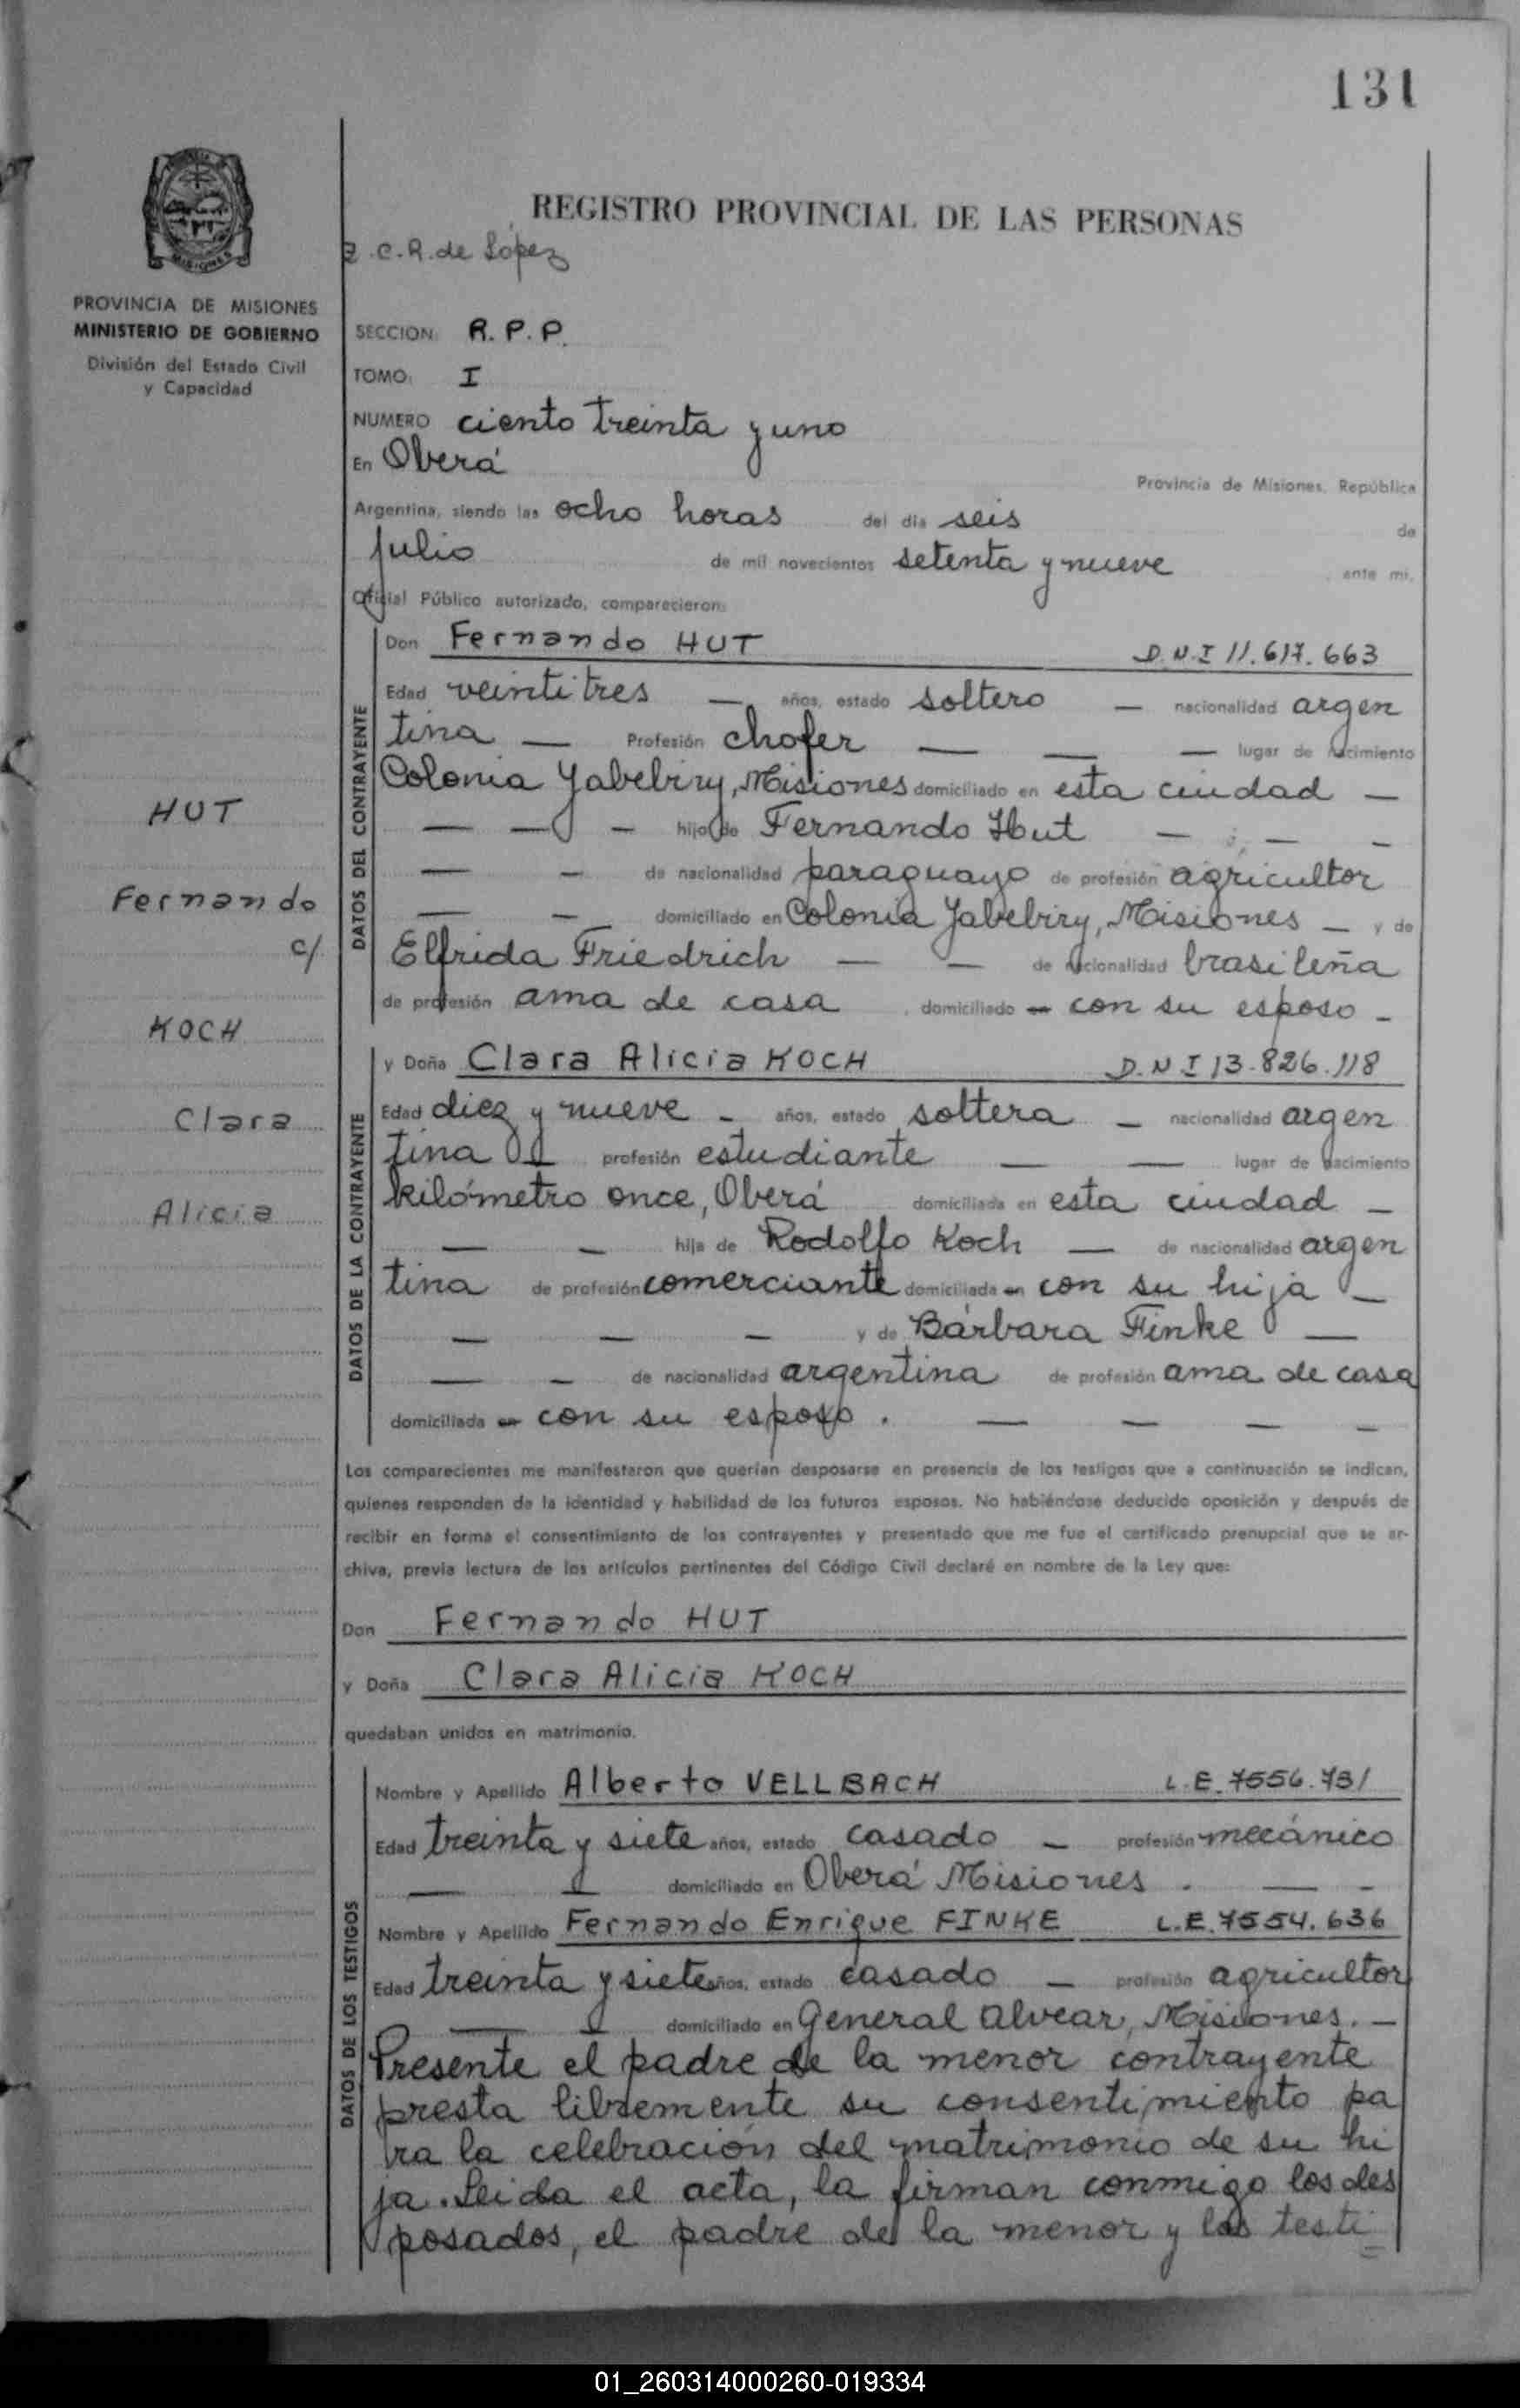 131
REGISTRO PROVINCIAL DE LAS PERSONAS
Z.C.R. de López
PROVINCIA DE MISIONES
MINISTERIO DE GOBIERNO
División del Estado Civil
y Capacidad
SECCION: R. P. P.
TOMO: I
NUMERO ciento treinta y uno
En Oberá
Provincia de Misiones, República
Argentina, siendo las ocho horas del día seis de
julio de mil novecientos setenta y nueve ante mi,
Oficial Público autorizado, comparecieron:
Don Fernando HUT D.N.I 11.617.663
Edad veintitres — años, estado soltero — nacionalidad argen
tina — Profesión chofer — — — lugar de nacimiento
Colonia Yabebiry, Misiones domiciliado en esta ciudad —
— — — hijo de Fernando Hut — — —
— — de nacionalidad paraguayo de profesión agricultor
— — domiciliado en Colonia Yabebiry, Misiones — y de
Elfrida Friedrich — — de nacionalidad brasileña
de profesión ama de casa domiciliado en con su esposo -
DATOS DEL CONTRAYENTE
HUT
Fernando
c/
KOCH
Clara
Alicia
y Doña Clara Alicia KOCH D.N.I 13.826.118
Edad diez y nueve - años, estado soltera — nacionalidad argen
tina — profesión estudiante — — lugar de nacimiento
kilómetro once, Oberá domiciliada en esta ciudad —
— — hija de Rodolfo Koch — de nacionalidad argen
tina de profesión comerciante domiciliada en con su hija —
— — — y de Bárbara Finke —
— — de nacionalidad argentina de profesión ama de casa
domiciliada en con su esposo . — — — —
DATOS DE LA CONTRAYENTE
Los comparecientes me manifestaron que querían desposarse en presencia de los testigos que a continuación se indican,
quienes responden de la identidad y habilidad de los futuros esposos. No habiéndose deducido oposición y después de
recibir en forma el consentimiento de los contrayentes y presentado que me fue el certificado prenupcial que se ar-
chiva, previa lectura de los artículos pertinentes del Código Civil declaré en nombre de la Ley que:
Don Fernando HUT
y Doña Clara Alicia KOCH
quedaban unidos en matrimonio.
Nombre y Apellido Alberto VELLBACH L.E. 7556.731
Edad treinta y siete años, estado casado — profesión mecánico
— — domiciliado en Oberá Misiones . — —
Nombre y Apellido Fernando Enrique FINKE L.E. 7554.636
Edad treinta y siete años, estado casado — profesión agricultor
— — domiciliado en General Alvear, Misiones. —
DATOS DE LOS TESTIGOS
Presente el padre de la menor contrayente
presta libremente su consentimiento pa
ra la celebración del matrimonio de su hi
ja. Leida el acta, la firman conmigo los des
posados, el padre de la menor y los testi
01_260314000260-019334